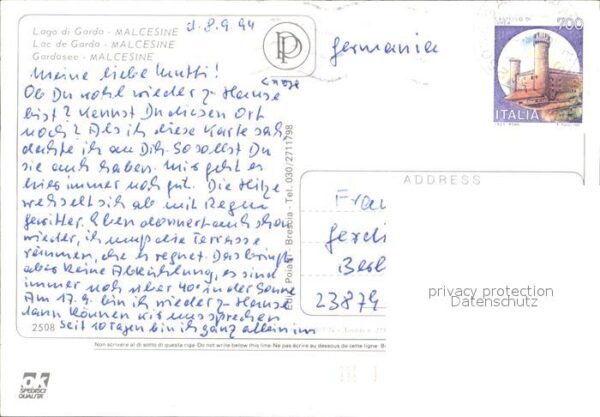 Lago di Garda - MALCESINE
Lac de Garda - MALCESINE
Gardasee - MALCESINE
d. 8.9.94
PP
Germania
700
ITALIA
Meine liebe Mutti!
Ob Du wohl wieder z. Hause
bist? Kennst Du diesen Ort
noch? Als ich diese Karte sah
dachte ich an Dich. So sollst Du
sie auch haben. Mir geht es
hier immer noch gut. Die Hitze
wechselt sich ab mit Regen
gewitter. Eben donnert auch schon
wieder, ich muß die Terrasse
räumen, da es regnet. Das bringt
aber keine Abkühlung, es sind
immer noch über 40° in der Sonne
Am 17.9. bin ich wieder z. Hause
dann können wir uns sprechen
Seit 10 Tagen bin ich ganz allein im
2508
Brescia - Tel. 030/2711798
ADDRESS
Frau
23879
privacy protection
Datenschutz
Non scrivere al di sotto di questa riga - Do not write below this line - Ne pas écrire au dessous de cette ligne
ok
SPEDISCI
QUALITA'